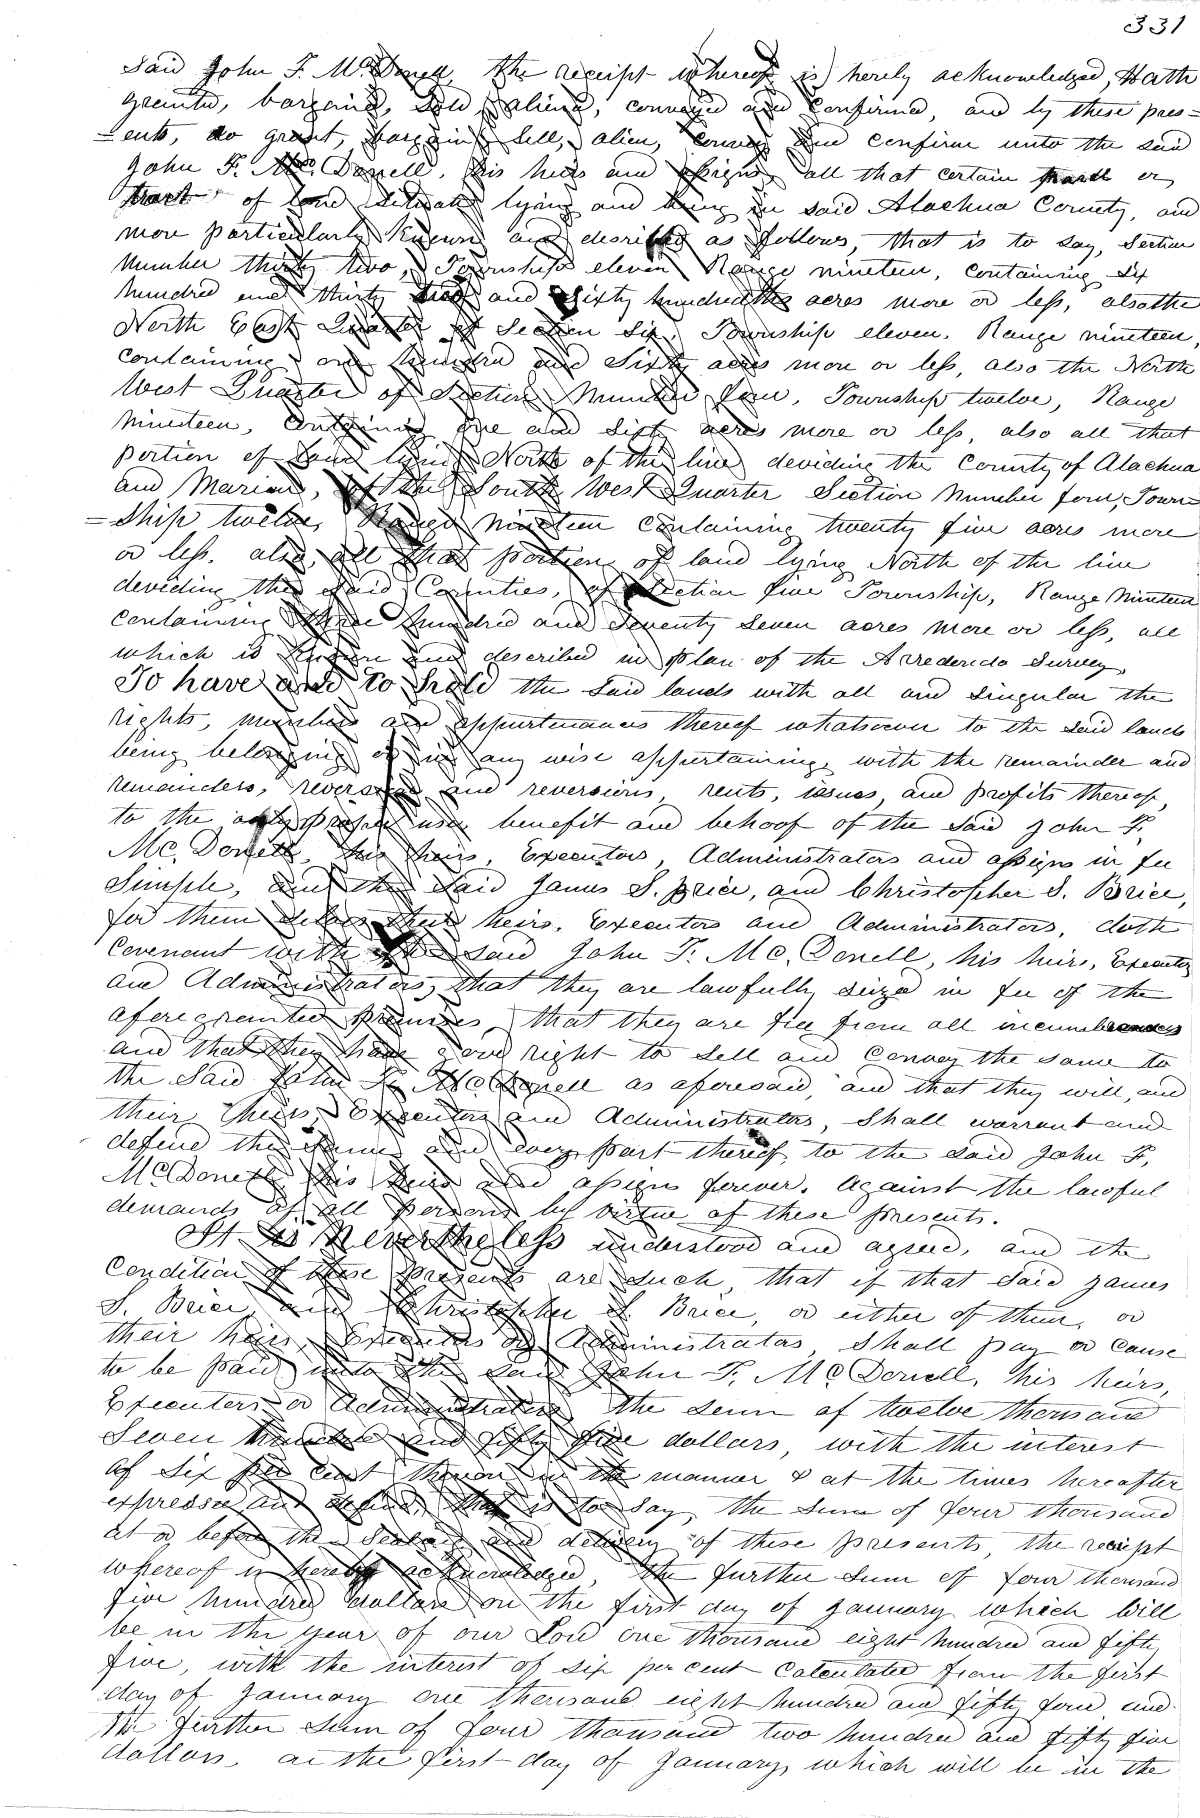 331
said John F. McDonell, the receipt whereof is hereby acknowledged, Hath
granted, bargained, sold, aliened, conveyed and confirmed, and by these pres=
=ents, do grant, bargain, sell, alien, convey and confirm unto the said
John F. Mc. Donell, his heirs and assigns, all that certain or
tract of land situate lying and being in said Alachua County, and
more particularly known and described as follows, that is to say, Section
Number thirty two, Township eleven Range nineteen, containing six
hundred and thirty and sixty hundredths acres more or less, also the
North East Quarter of Section Six, Township eleven. Range nineteen,
containing one hundred and sixty acres more or less, also the North
West Quarter of Section Number four, Township twelve, Range
nineteen, containing one and sixty acres more or less, also all that
portion of land lying North of the line deviding the County of Alachua
and Marion, of the South West Quarter Section Number four, Town=
=ship twelve, Range nineteen containing twenty five acres more
or less, also all that portion of land lying North of the line
deviding the said Counties, of Section five Township, Range nineteen
containing three hundred and seventy seven acres more or less, all
which is known and described in plan of the Arredondo Survey,
To have and to hold the said lands with all and singular the
rights, members and appurtenances thereof whatsoever to the said lands
being belonging or in any wise appertaining, with the remainder and
remainders, reversion and reversions, rents, issues, and profits thereof,
to the only proper use, benefit and behoof of the said John F.
Mc. Donell, his heirs, Executors, Administrators and assigns in fee
Simple, and the said James S. Brice, and Christopher S. Brice,
for them selves their heirs, Executors and Administrators, doth
Covenant with the said John F. Mc. Donell, his heirs, Executors
and Administrators, that they are lawfully seized in fee of the
aforegranted premises, that they are free from all incumbrances
and that they have good right to sell and convey the same to
the said John F. McDonell as aforesaid, and that they will, and
their heirs, Executors and Administrators, shall warrant and
defend the same and every part thereof, to the said John F.
McDonell his heirs and assigns forever. Against the lawful
demands of all persons by virtue of these presents.
It is Nevertheless understood and agreed, and the
Condition of these presents are such, that if that said James
S. Brice, and Christopher S. Brice, or either of them, or
their heirs, Executors or Administrators, shall pay or cause
to be paid unto the said John F. McDonell, his heirs,
Executors or Administrators, the sum of twelve thousand
Seven hundred and fifty five dollars, with the interest
of six per cent thereon in the manner & at the times hereafter
expressed and defined, that is to say, the sum of four thousand
at or before the sealing and delivery of these presents, the receipt
whereof is hereby acknowledged, the further sum of four thousand
five hundred dollars on the first day of January which will
be in the year of our Lord one thousand eight hundred and fifty
five, with the interest of six per cent calculated from the first
day of January one thousand eight hundred and fifty four and
the further sum of four thousand two hundred and fifty five
dollars, on the first day of January, which will be in the